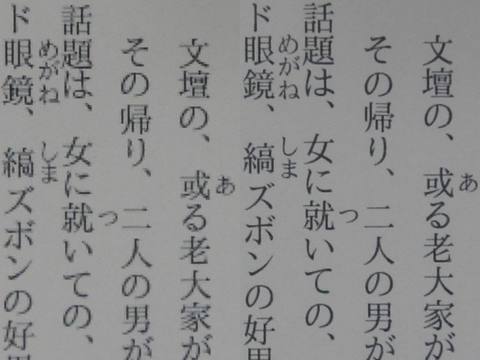 文壇の、或る老大家が
あ
その帰り、二人の男が
話題は、女に就いての、
つ
ド眼鏡、縞ズボンの好
めがね
しま
文壇の、或る老大家が
あ
その帰り、二人の男が
話題は、女に就いての、
つ
ド眼鏡、縞ズボンの好
めがね
しま